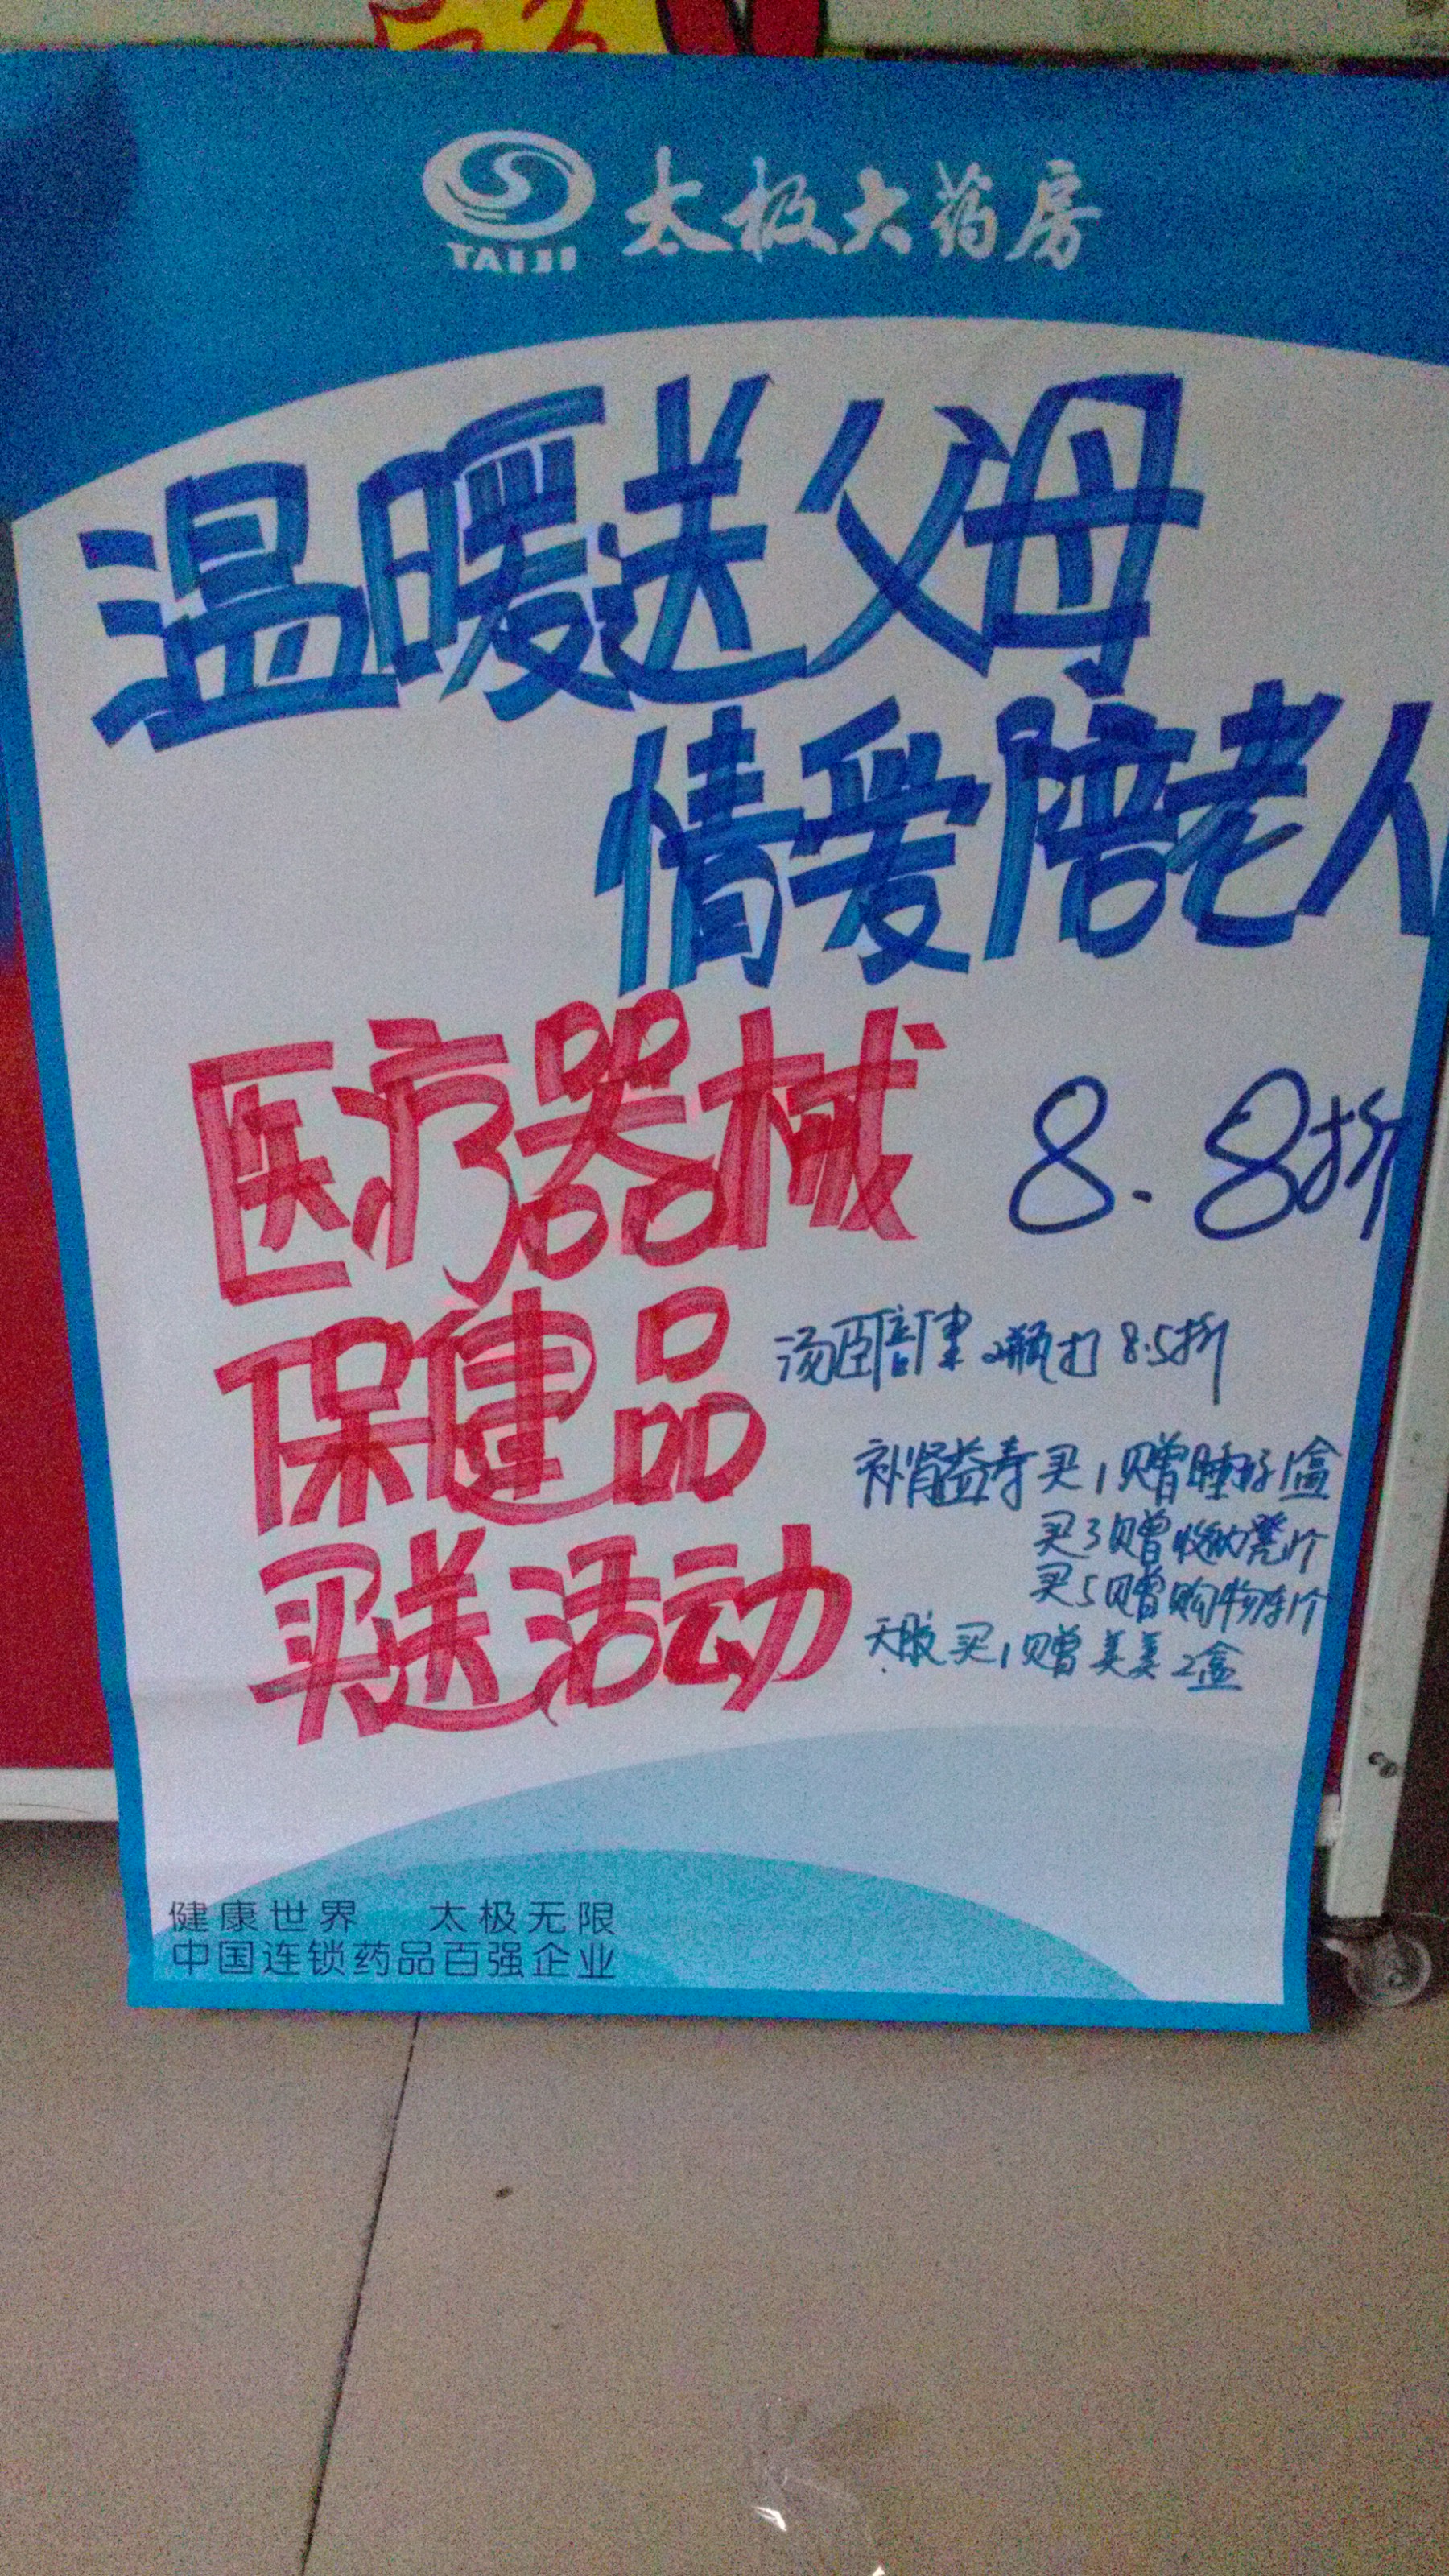 TAIJI 太极大药房
温暖送父母
情爱陪老人
医疗器械 8.8折
保健品 汤臣倍健 2瓶打 8.5折
补肾益寿 买1赠睡好1盒
买3赠收纳凳1个
买5赠购物车1个
买送活动 天胶 买1赠 美美 2盒
健康世界 太极无限
中国连锁药品百强企业